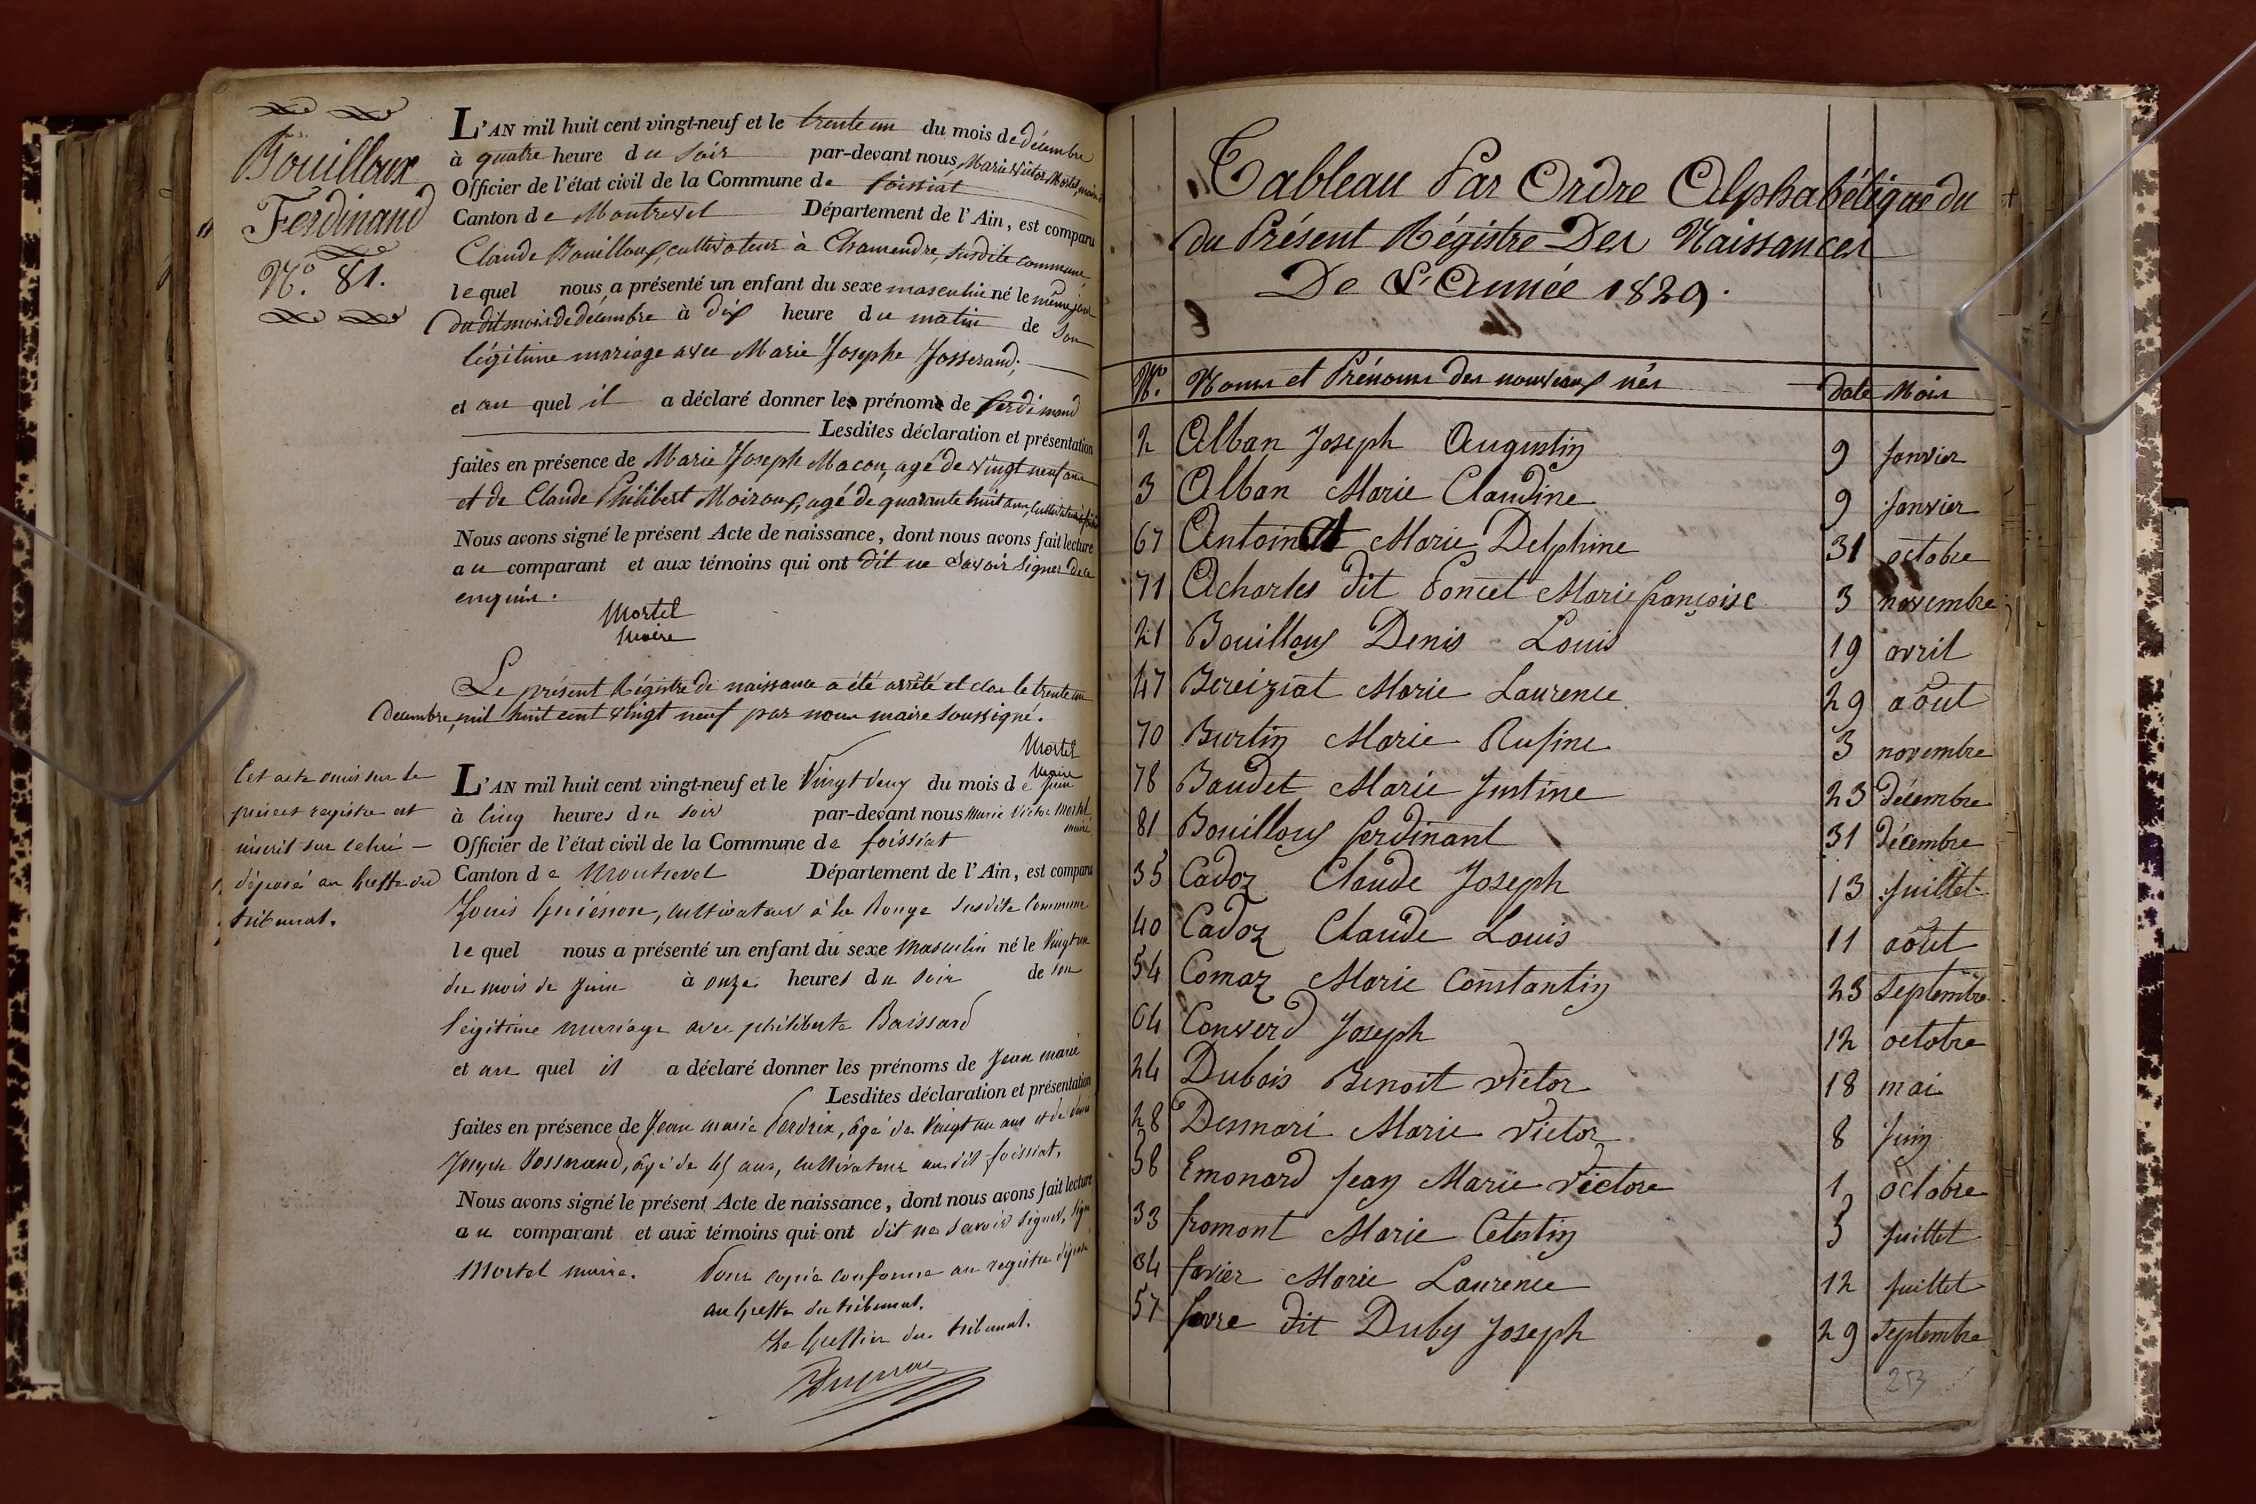 Bouilloux
Ferdinand
N.º 81.
L'AN mil huit cent vingt-neuf et le trente un du mois de décembre
à quatre heure du soir par-devant nous, Marie Victor Mortel, maire
Officier de l'état civil de la Commune de foissiat
Canton de Montrevel Département de l'Ain, est comparu
Claude Bouilloux, cultivateur à Chamandre, susdite commune
lequel nous a présenté un enfant du sexe masculin né le même jour
dudit mois de décembre à dix heure du matin de son
légitime mariage avec Marie Josephe Josserand;
et au quel il a déclaré donner les prénoms de ferdinand
Lesdites déclaration et présentation
faites en présence de Marie Joseph Macon, agé de vingt neuf ans
et de Claude Philibert Moiroux, agé de quarante huit ans, cultivateurs
Nous avons signé le présent Acte de naissance, dont nous avons fait lecture
au comparant et aux témoins qui ont dit ne savoir signer de ce
enquis.
Mortel
maire
Le présent Régistre de naissance a été arrêté et clos le trente un
decembre, mil huit cent vingt neuf par nous maire soussigné.
Mortel
maire
Cet acte omis sur le
présent registre est
inscrit sur celui
déposé au Greffe du
tribunal.
L'AN mil huit cent vingt-neuf et le Vingt deux du mois de juin
à cinq heures du soir par-devant nous Marie Victor Mortel maire
Officier de l'état civil de la Commune de foissiat
Canton de Montrevel Département de l'Ain, est comparu
Louis Guénon, cultivateur à la Rouge susdite Commune
lequel nous a présenté un enfant du sexe masculin né le Vingt un
du mois de juin à onze heures du soir de son
légitime mariage avec philiberte Baissard
et au quel il a déclaré donner les prénoms de Jean marie
Lesdites déclaration et présentation
faites en présence de Jean marie Perdrix, âgé de Vingt un ans et de
Joseph Josserand, âgé de 45 ans, cultivateurs au dit foissiat.
Nous avons signé le présent Acte de naissance, dont nous avons fait lecture
au comparant et aux témoins qui ont dit ne savoir signer, signé
Mortel maire. Pour copie conforme au registre déposé
au Greffe du tribunal.
Le Greffier du tribunal.
Tableau Par Ordre Alphabétique du
du Présent Régistre Des Naissances
De L'Année 1829.
N.º Noms et Prénoms des nouveaux nés Date Mois
2 Alban Joseph Augustin 9 janvier
3 Alban Marie Claudine 9 janvier
67 Antoinat Marie Delphine 31 octobre
71 Acharles dit Poncet Marie françoise 3 novembre
21 Bouilloux Denis Louis 19 avril
47 Bereiziat Marie Laurence 29 août
70 Burtin Marie Rufine 3 novembre
78 Baudet Marie Justine 23 décembre
81 Bouilloux ferdinant 31 décembre
35 Cadoz Claude Joseph 13 juillet
40 Cadoz Claude Louis 11 août
54 Comaz Marie Constantin 23 septembre
64 Converd Joseph 12 octobre
24 Dubois Benoit victor 18 mai
28 Desmari Marie victor 8 juin
58 Emonard Jean Marie victore 1 octobre
33 fromont Marie Celestin 5 juillet
34 favier Marie Laurence 12 juillet
57 favre dit Duby Joseph 29 septembre
253